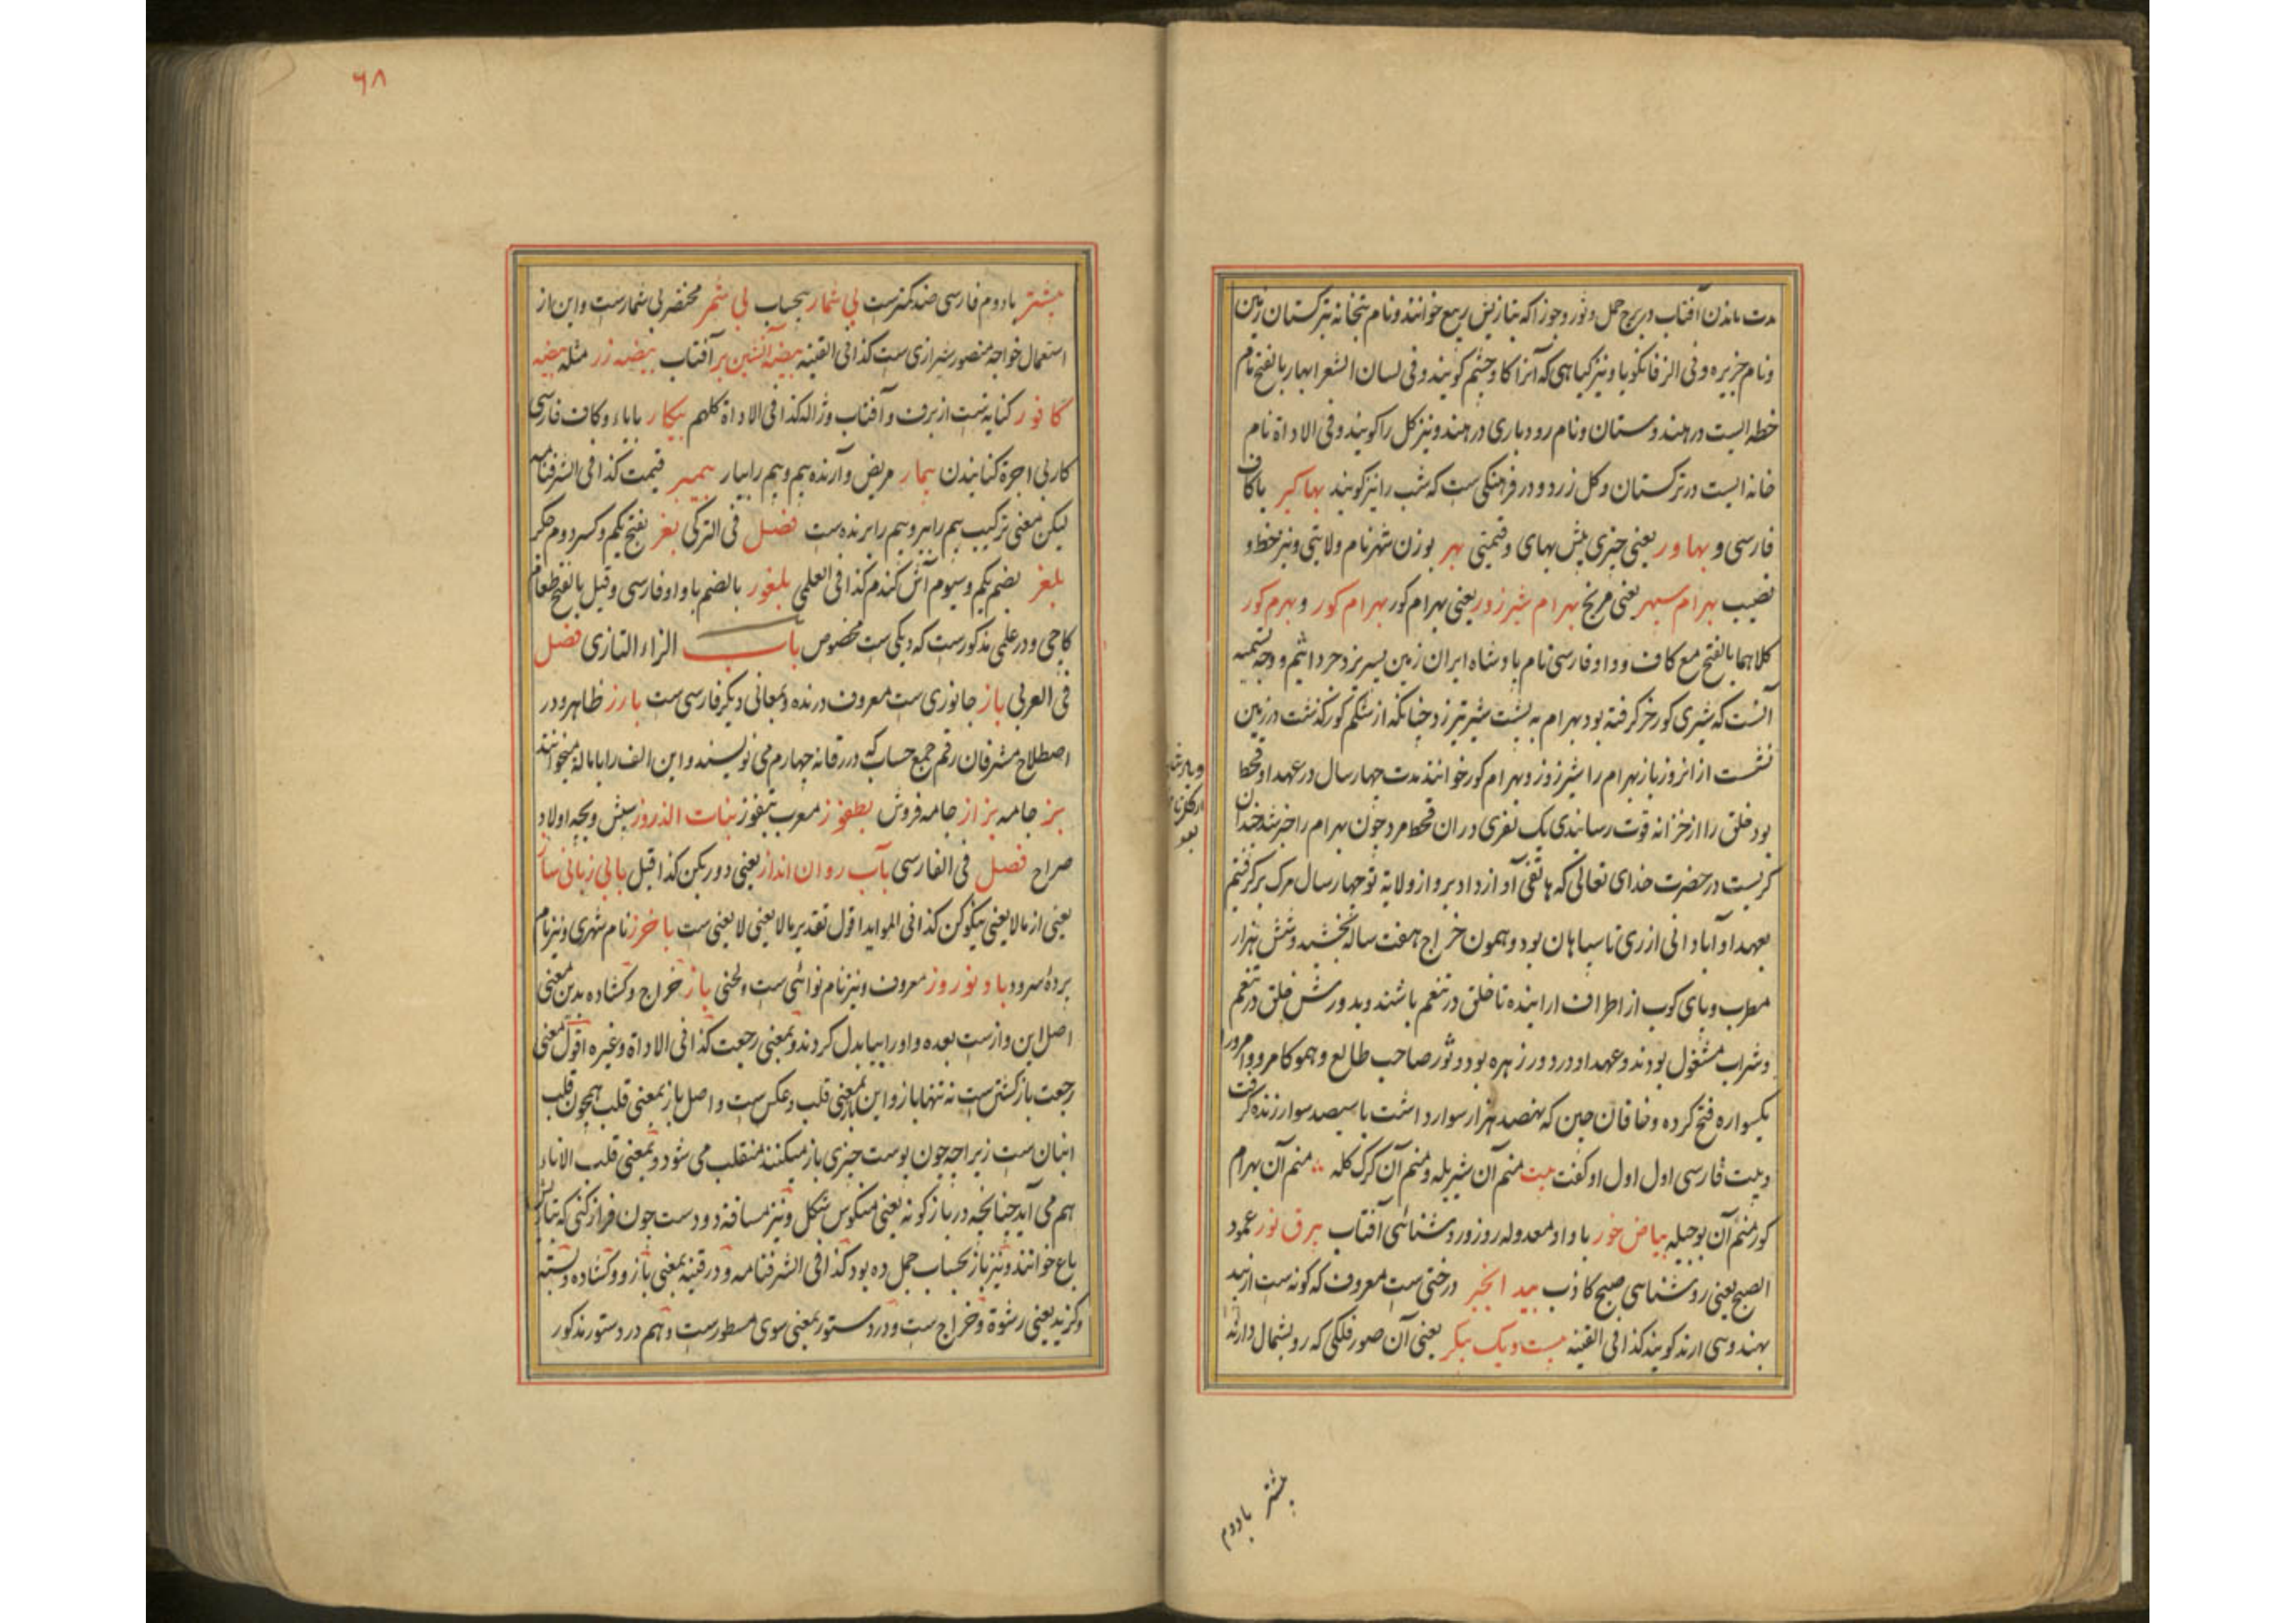 مدت ماندن آفتاب در برج حمل و ثور و جوزا که بتازیش ربیع خوانند و نام بتخانه بترکستان زمین
و نام جزیره و فی الزفانگویا و نیز کیاهی که آنرا کاوجشم کویند و فی لسان الشعرا بهار بالفتح نام
خطه ایست در هندوستان و نام رودباری در هند و نیز کل را کویند و فی الاداة نام
خانه ایست در ترکستان و کل زرد و در فرهنکی ست که شب را نیز کویند بهاکیر باکاف
فارسی و بهاور یعنی جیزی بیش بهای و قیمتی بهر بوزن شهر نام ولایتی و نیز خط و
نصیب بهرام سپهر یعنی مریخ بهرام شیر زور یعنی بهرام کور بهرام کور و بهرم کور
کلاهما بالفتح مع کاف و واو فارسی نام بادشاه ایران زمین پسر یزدجرد اثیم و وجه تسمیه
آنست که شیری کورخر کرفته بود بهرام به پشت شیر تیر زد جنانکه از شکم کور کذشت در زمین
نشست از انروز باز بهرام را شیرزور و بهرام کور خوانند مدت جهار سال در عهد او قحط
بود خلق را از خزانه قوت رسانیدی یک نفری در ان قحط مرد جون بهرام را خبر شد جندان
کریست در حضرت خدای تعالی که هاتفی آواز داد برو از ولایة تو جهار سال مرک برکرفتیم
بعهد او آبادانی از ری تا سپاهان بود و همون خراج هفت ساله بخشید و شش هزار
مطرب و بای کوب از اطراف ارانیده تا خلق در تنعم باشند و بدورش خلق در تنعم
و شراب مشغول بودند و عهد او در دور زهره بود و ثور صاحب طالع و همو کامرو و امرورا
یکسواره فتح کرده و خاقان جین که نهصد هزار سوار داشت با سیصد سوار زنده کرفت
و بیت فارسی اول اول او کفت بیت منم آن شیر یله و منم آن کرک کله منم آن بهرام
کور منم آن بوجبله بیاض خور با واو معدوله روز و روشنائی آفتاب برق نور عمود
الصبح یعنی روشناسی صبح کاذب بید انجیر درختی ست معروف که کونه ست از بید
بهندوسی ارند کویند کذا فی القینه بیست و یک بیکر یعنی آن صور فلکی که رو بشمال دارند
بیشتر بادوم
۶۸
بیشتر بادوم فارسی ضد کمترست بی شمار بیحساب بی شمر مختصر بی شمارست و این از
استعمال خواجه منصور شیرازی ست کذا فی القینه بیضه آتشین بر آفتاب بیضه زر مثله بیضه
کافور کنایه ست از برف و آفتاب و ژاله کذا فی الاداة کلهم بیکار با یاء و کاف فارسی
کار بی اجرة کنانیدن بیمار مریض و آرنده بیم و بیم را بیار بیمبر قیمت کذا فی الشرفنامه
لیکن معنی ترکیب بیم را ببر و بیم را برنده ست فصل فی الترکی بغر بفتح یکم و کسر دوم جکر
بلغر بضم یکم و سیوم آش کندم کذا فی العلمی بلغور بالضم با واو فارسی و قیل بالفتح طعام
کاجی و در علمی مذکورست که دیکی ست مخصوص باب الزاء التازی فصل
فی العربی باز جانوری ست معروف درنده و بمعانی دیکر فارسی ست بارز ظاهر و در
اصطلاح مشرفان رقم جمع حساب که در رقانه جهارم می نویسند و این الف را باماله میخوانند
بز جامه بزاز جامه فروش بطغوز معرب تبغوز بنات الدروز سپش و بجه اولاد
صراح فصل فی الفارسی بآب روان انداز یعنی دور بکن کذا قیل بابی زبانی ساز
یعنی از مالایعنی نیکو کن کذا فی الموایدا قول تقدیر مالایعنی لایعنی ست باخرز نام شهری و نیز نام
بردهٔ سرود باد نوروز معروف و نیز نام نوائی ست و لحنی باز خراج و کشاده بدین معنی
اصل این وازست بعده واو را ببا بدل کردند و بمعنی رجعت کذا فی الاداة و غیره اقول معنی
رجعت بازکشتن ست نه تنها باز و این بمعنی قلب و عکس ست و اصل باز بمعنی قلب همجون قلب
انبان ست زیراجه جون بوست جیزی باز میکنند منقلب می شود و بمعنی قلب الاناء
هم می آید جنانجه در بازکونه یعنی منکوس شکل و نیز مسافة دو دست جون فراز کنی که بتازیش
باع خوانند و نیز باز بحساب جمل ده بود کذا فی الشرفنامه و در قینه بمعنی بازو و کشاده و بسته
و کزید یعنی رشوة و خراج ست و در دستور بمعنی سوی مسطورست و هم در دستور مذکور